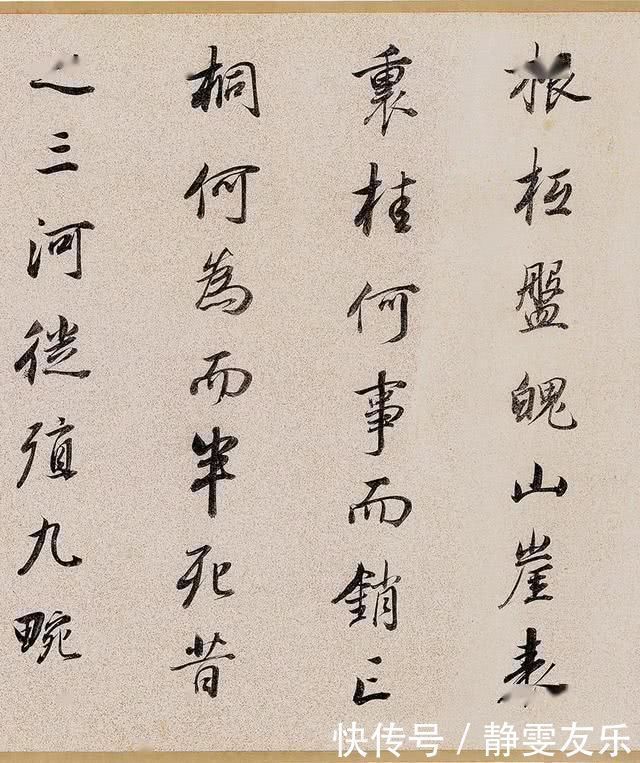 根柢盤魄山崖表
裏桂何事而銷亡
桐何為而半死昔
之三河徙殖九畹
快传号 / 静雯友乐